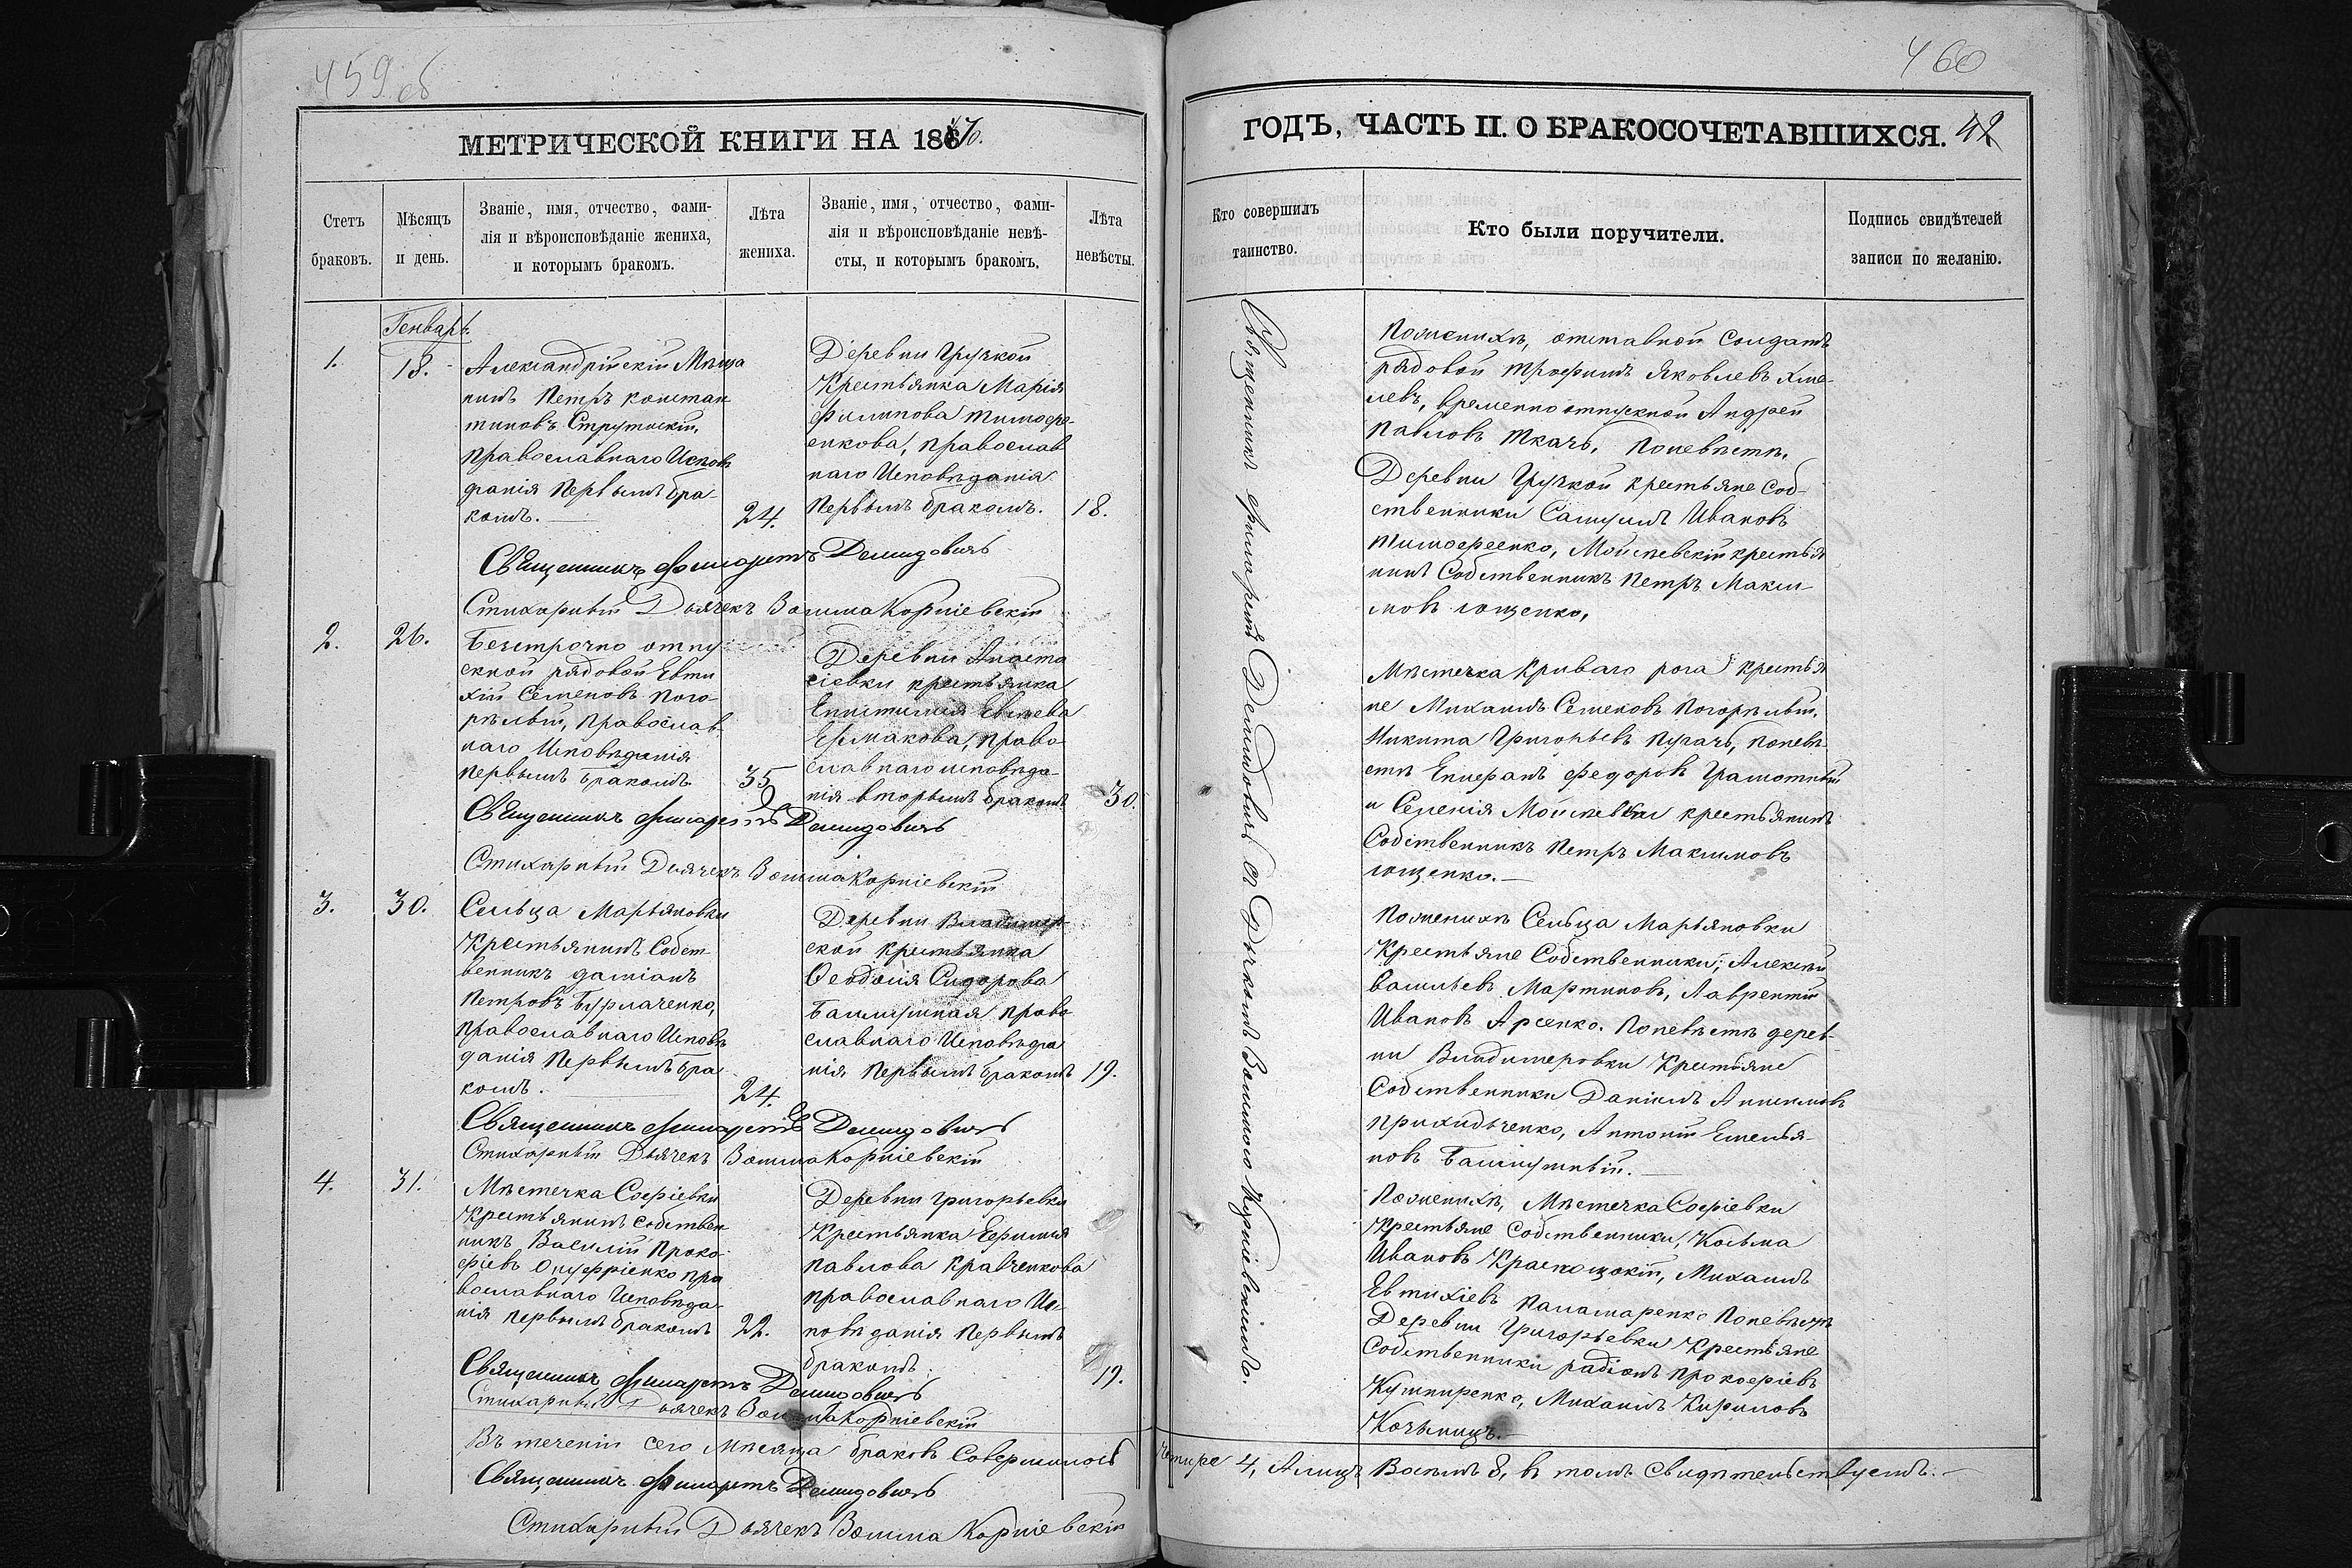 459 об
МЕТРИЧЕСКОЙ КНИГИ НА 1870.
Счетъ браковъ.
Мѣсяцъ и день.
Званіе, имя, отчество, фами-
лія и вѣроисповѣданіе жениха,
и которымъ бракомъ.
Лѣта жениха.
Званіе, имя, отчество, фами-
лія и вѣроисповѣданіе невѣ-
сты, и которымъ бракомъ.
Лѣта невѣсты.
Генварь
1.
18.
Александрійскій Мѣща
нинъ Петръ констан
тиновъ Струтискій,
православнаго Исповѣ
данія Первымъ бра-
комъ.
24.
Деревни Грузкой
Крестьянка Марія
Филипова Тимофе-
енкова, православ
наго Исповѣданія
Первымъ бракомъ.
18.
Священникъ Филаретъ Демидовичъ
Стихарный Дьячекъ Корніевскій
2.
26.
Безсрочно отпу
скной рядовой Евти
хій Семеновъ Пого-
рѣлый, православ-
наго Исповѣданія
первымъ бракомъ
35
Деревни Анаста
сіевки крестьянка
Епистимія
Ермакова, право
славнаго исповѣда-
нія вторымъ бракомъ
30.
Священникъ Филаретъ Демидовичъ
Стихарный Дьячекъ Корніевскій
3.
30.
Сельца Марьяновки
Крестьянинъ Собст-
венникъ даміанъ
Петровъ Бурлаченко,
православнаго Исповѣ
данія Первымъ бра
комъ.
24.
Деревни Владимер-
ской крестьянка
Ѳеодосія Сидорова
право
славнаго Исповѣда
нія Первымъ бракомъ
19.
Священникъ Филаретъ Демидовичъ
Стихарный Дьячекъ Корніевскій
4.
31.
Мѣстечка Софіевки
Крестьянинъ собствен
никъ Василій Проко-
фіевъ Онуфріенко пра
вославнаго Исповѣда-
нія первымъ бракомъ
22.
Деревни Григорьевки
Крестьянка Ефимія
Павлова Кравченкова
православнаго Ис-
повѣданія Первымъ
бракомъ.
19.
Священникъ Филаретъ Демидовичъ
Стихарный Дьячекъ Корніевскій
Въ теченіи сего Мѣсяца браковъ Совершилось
Священникъ Филаретъ Демидовичъ
Стихарный Дьячекъ Корніевскій
460
ГОДЪ, ЧАСТЬ II. О БРАКОСОЧЕТАВШИХСЯ. 42
Кто совершилъ таинство.
Кто были поручители.
Подпись свидѣтелей
записи по желанію.
Священникъ Филаретъ Демидовичъ съ Дьячкомъ Корніевскимъ.
Поженихѣ, отставной Солдатъ
рядовой Трофимъ Яковлевъ Хме-
левъ, временно отпускной Андрей
Павловъ Ткачъ, Поневѣстѣ,
Деревни Грузкой крестьяне Соб-
ственники Самуилъ Ивановъ
Тимофеенко, Моисеевскій крестья
нинъ Собственникъ Петръ Макси-
мовъ Ющенко,
Мѣстечка Криваго рога крестья
не Михаилъ Семеновъ Погорѣлый,
Никита Григорьевъ Пугачъ, поневѣ-
стѣ Епифанъ Федоровъ Грамотный
и Селенія Моисеевки крестьянинъ
Собственникъ Петръ Максимовъ
Ющенко.
Поженихѣ Сельца Марьяновки
Крестьяне Собственники, Алексѣй
Васильевъ Мартиновъ, Лаврентій
Ивановъ Арсенко. Поневѣстѣ дерев-
ни Владимеровки Крестьяне
Собственники Даніилъ Анисимовъ
Приходченко, Антоній Емелья-
новъ
Поженихѣ, Мѣстечка Софіевки
Крестьяне Собственники, Козьма
Ивановъ Михаилъ
Евтихіевъ Паламаренко Поневѣстѣ
Деревни Григорьевки Крестьяне
Собственники радіонъ прокофіевъ
Кушниренко, Михаилъ Кириловъ
четыре 4, Алицъ Восемь 8, въ томъ свидѣтельствуемъ.